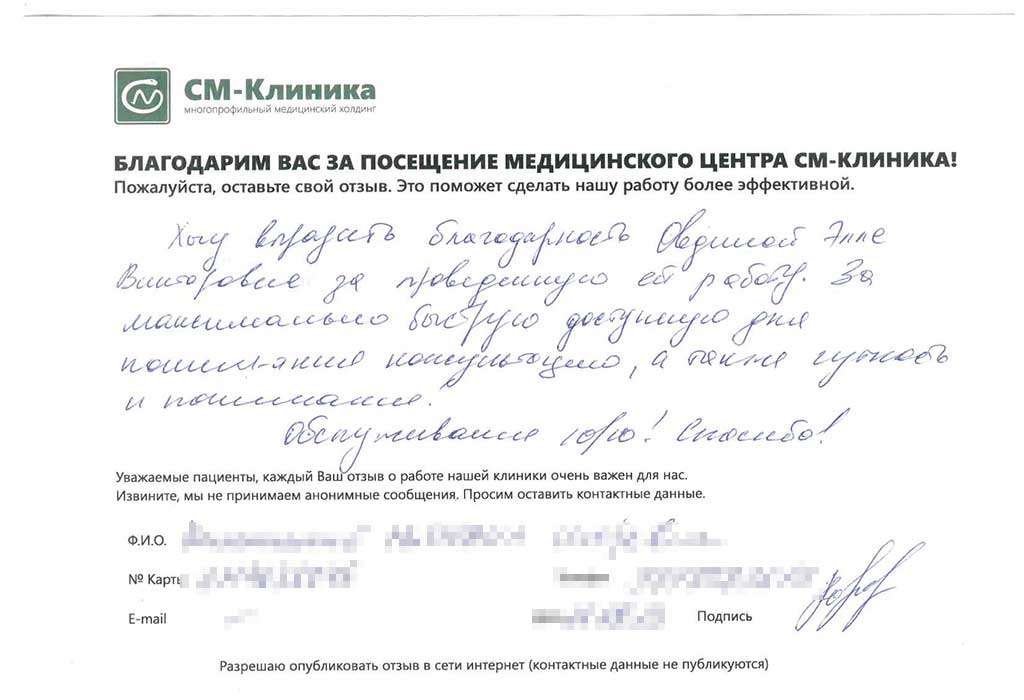 СМ-Клиника
многопрофильный медицинский холдинг
БЛАГОДАРИМ ВАС ЗА ПОСЕЩЕНИЕ МЕДИЦИНСКОГО ЦЕНТРА СМ-КЛИНИКА!
Пожалуйста, оставьте свой отзыв. Это поможет сделать нашу работу более эффективной.
Хочу выразить благодарность Элле
Викторовне за проведенную ей работу. За
максимально быструю доступную для
понимания консультацию, а также чуткость
и понимание.
Обслуживание ! Спасибо!
Уважаемые пациенты, каждый Ваш отзыв о работе нашей клиники очень важен для нас.
Извините, мы не принимаем анонимные сообщения. Просим оставить контактные данные.
Ф.И.О.
№ Карты
E-mail
Подпись
Разрешаю опубликовать отзыв в сети интернет (контактные данные не публикуются)